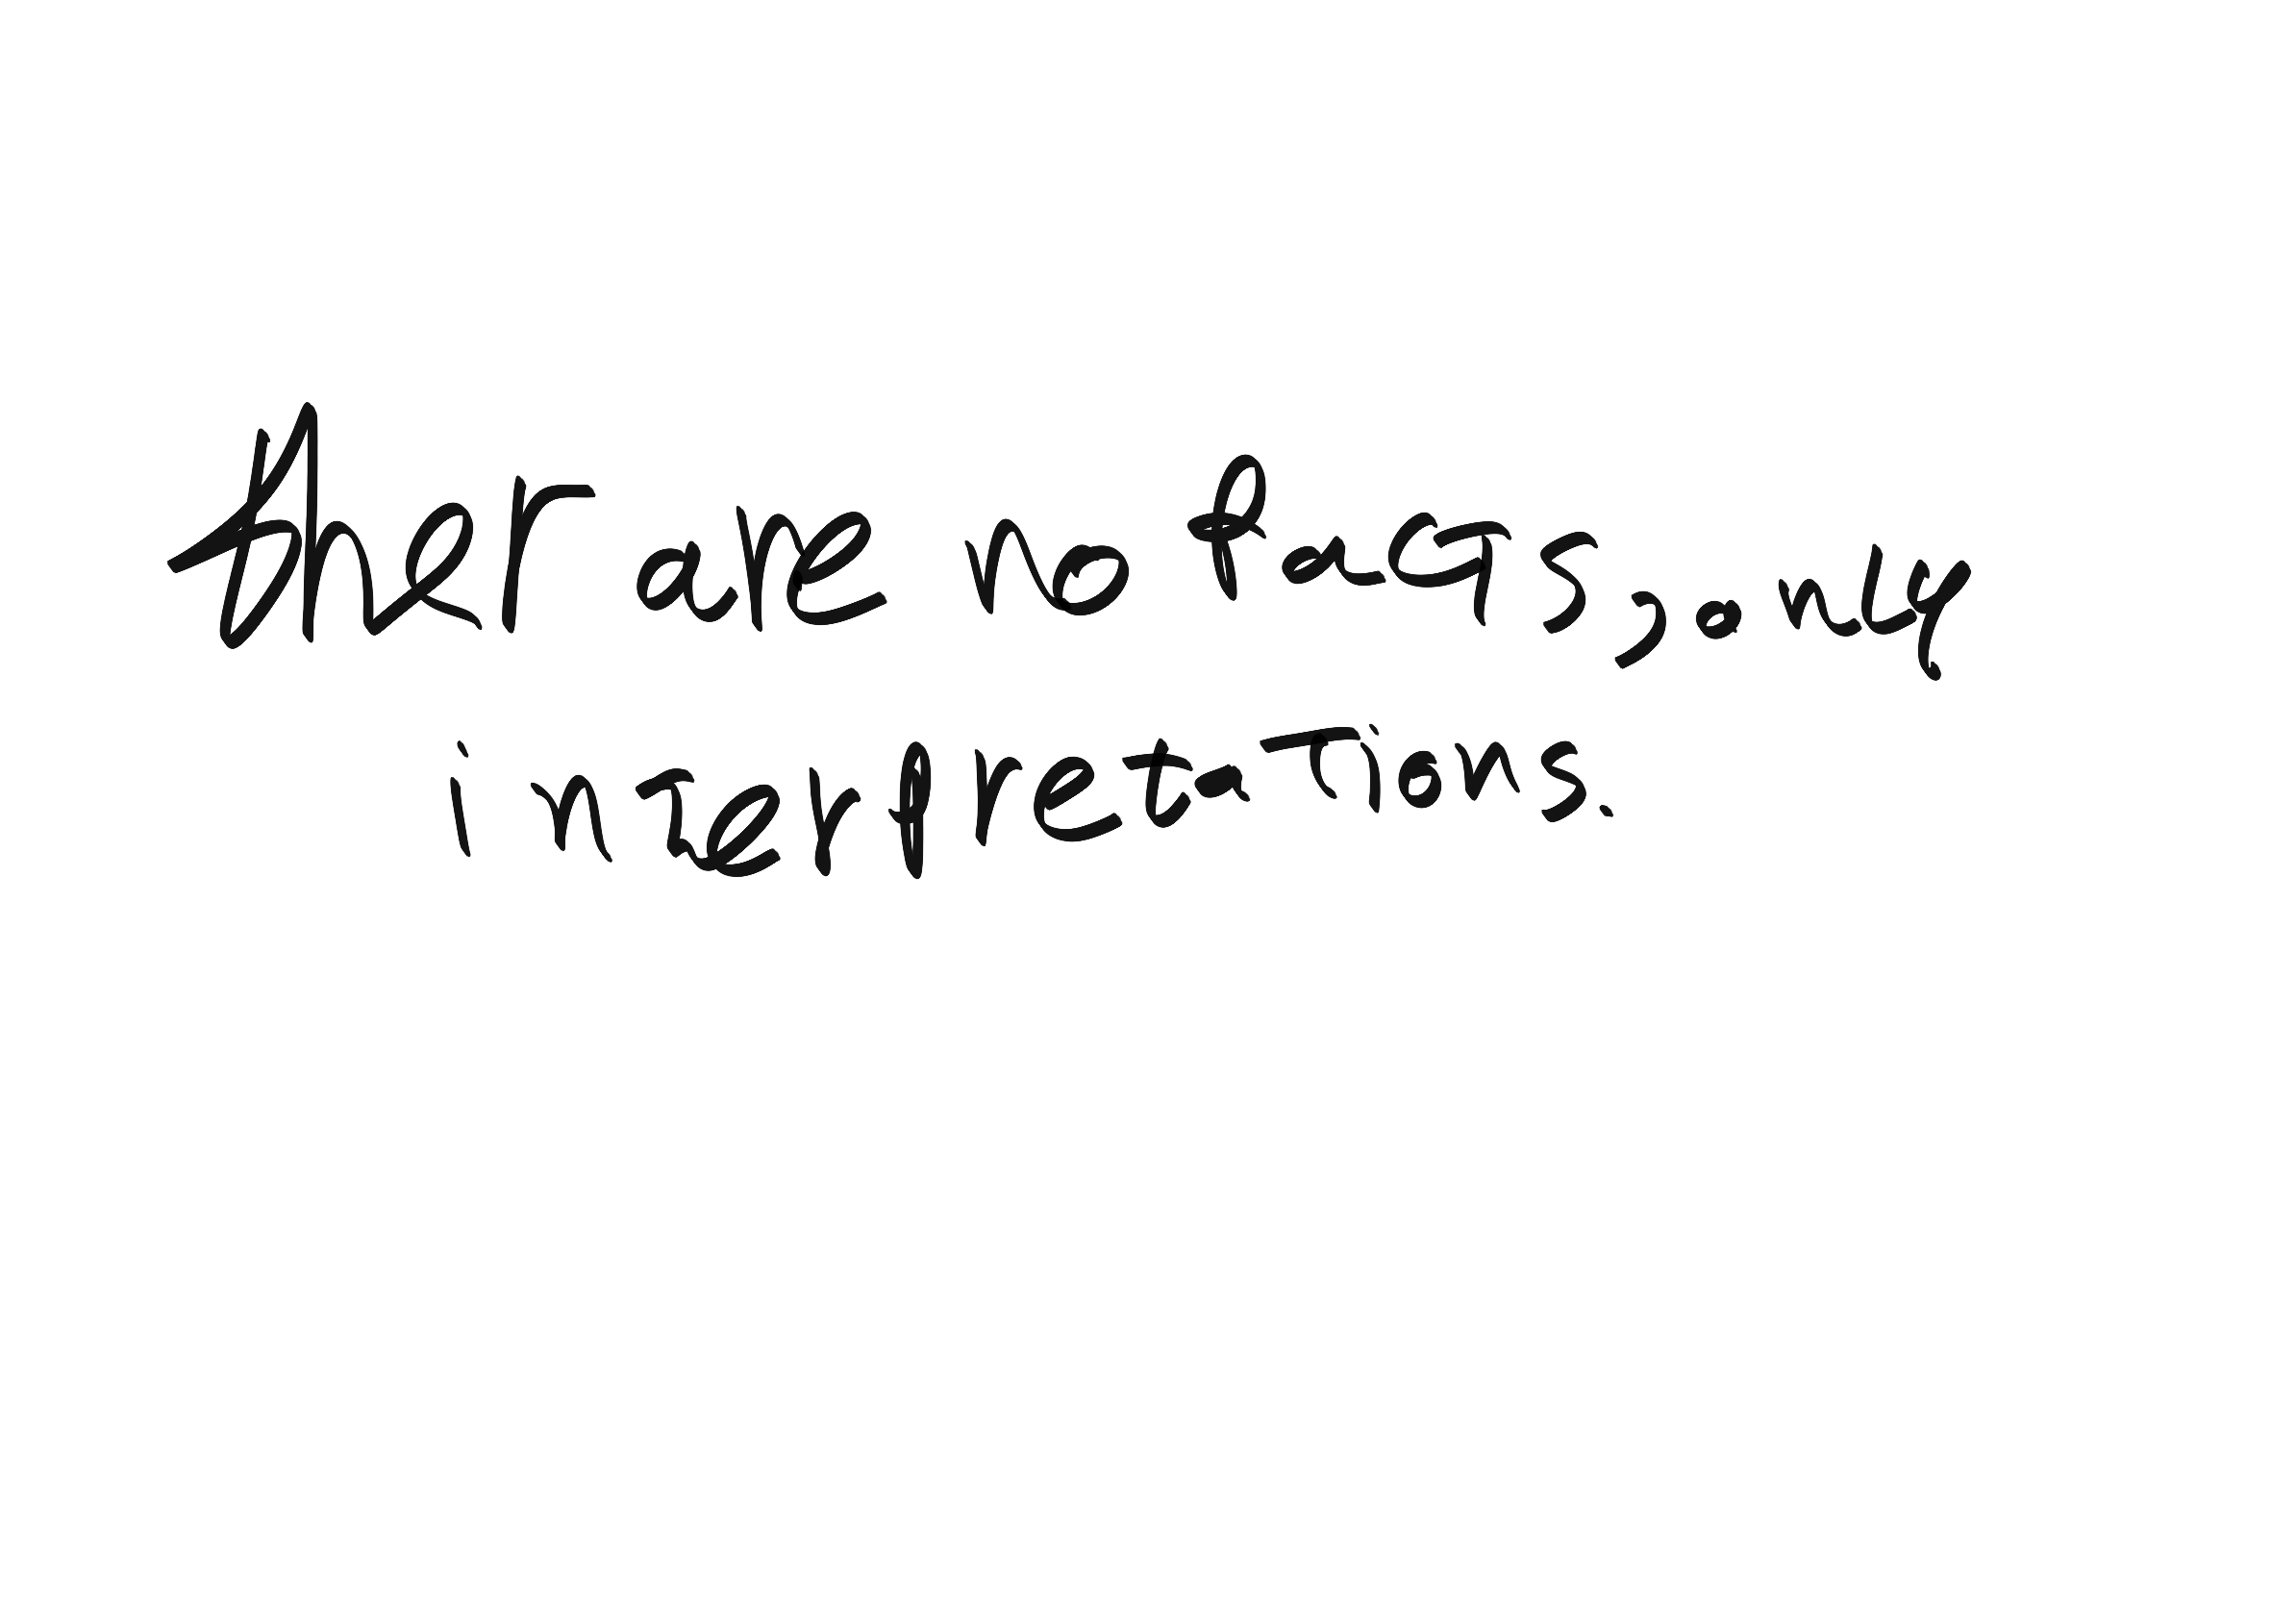 ther are no facts, only
interpretations.